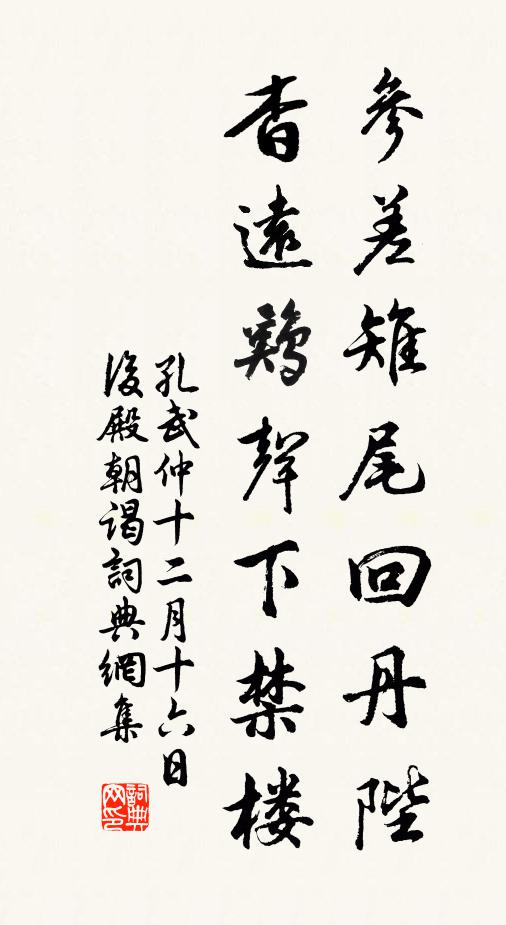 參差雉尾回丹陛
杳遠鷄聲下禁楼
孔武仲十二月十六日
後殿朝谒詞典網集
詞典
网印